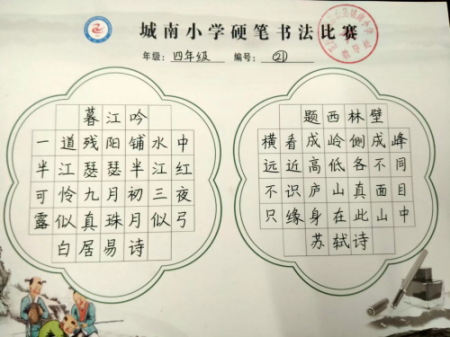 城南小学硬笔书法比赛
年级：四年级 编号：㉑
暮江吟
一道残阳铺水中
半江瑟瑟半江红
可怜九月初三夜
露似真珠月似弓
白居易诗
题西林壁
横看成岭侧成峰
远近高低各不同
不识庐山真面目
只缘身在此山中
苏轼诗